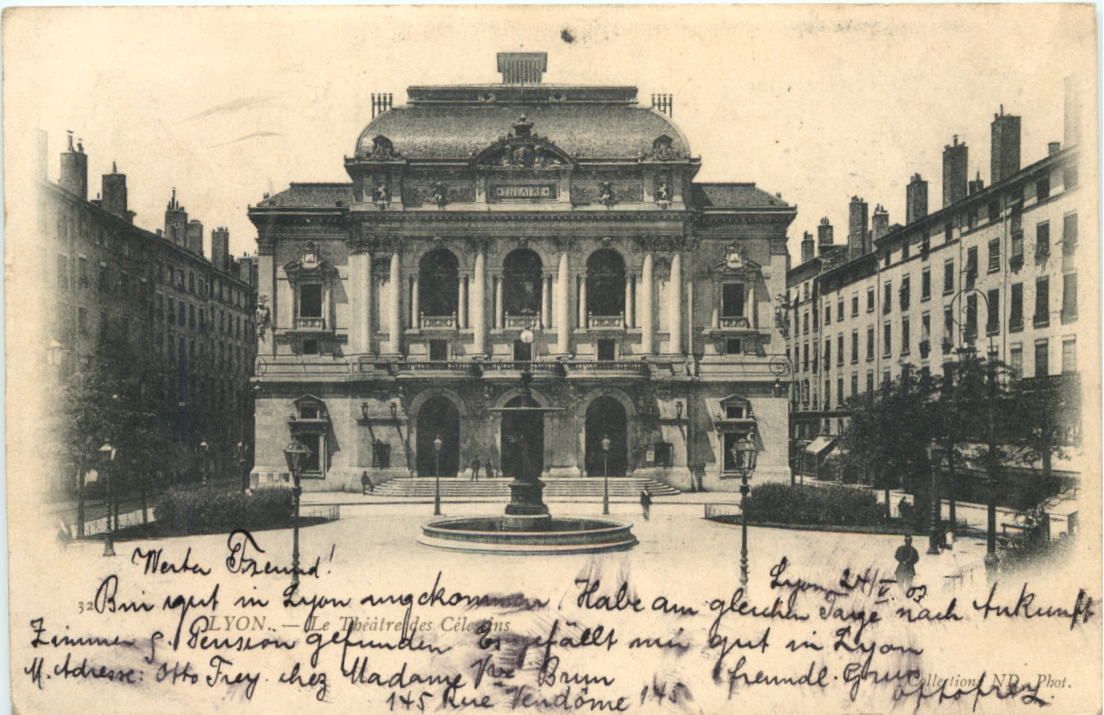 THEATRE
Werter Freund!
Lyon 24/V. 03
Bin gut in Lyon angekommen. Habe am gleichen Tage nach Ankunft
32 LYON. — Le Théâtre des Célestins
Zimmer & Pension gefunden Es gefällt mir gut in Lyon
M. Adresse: Otto Frey. chez Madame Vve Brun freundl. Gruss
Collections ND. Phot.
Otto Frey.
145 Rue Vendôme 145